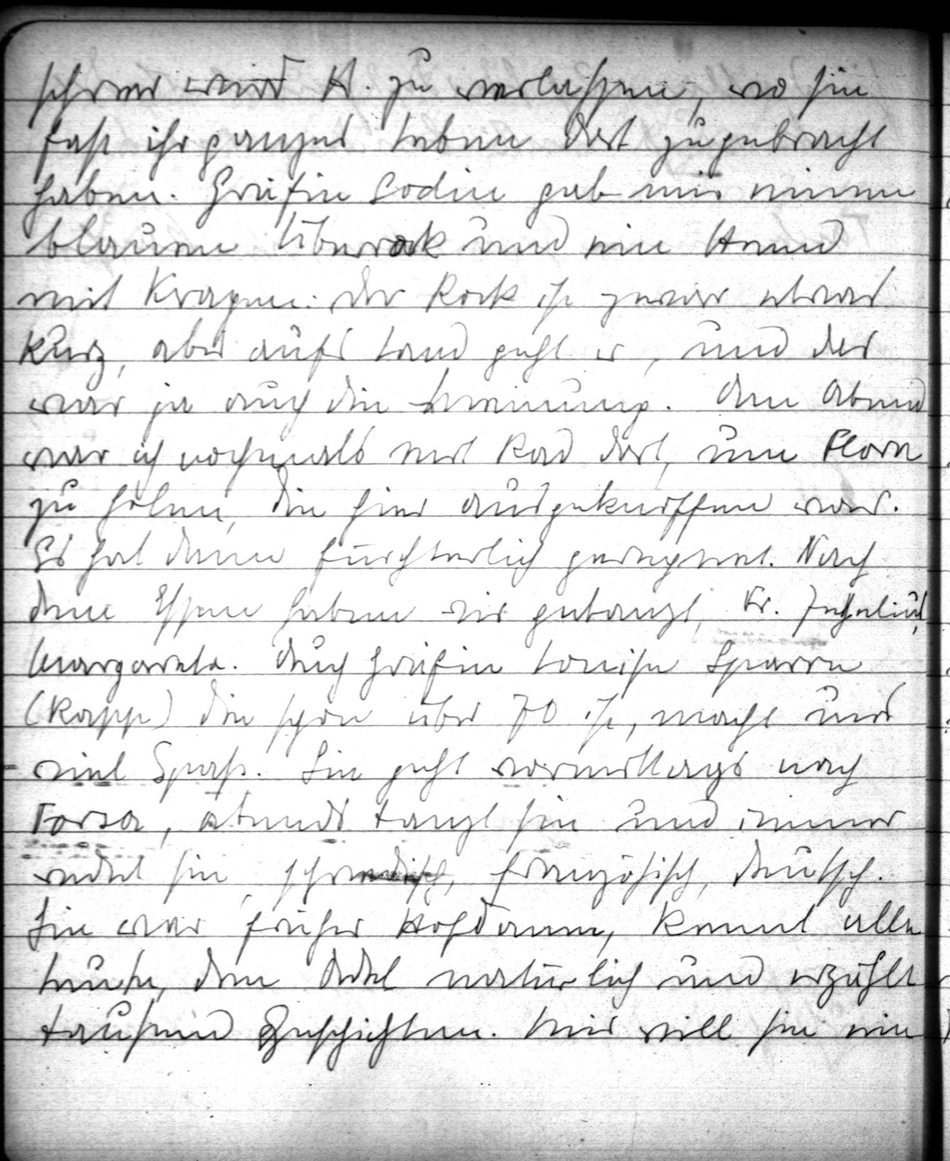 schwer wird H. zu verlassen, wo sie
fast ihr ganzes Leben dort zugebracht
haben. Gräfin Godin gab mir einen
blauen Überrock und ein Hemd
mit Kragen. Der Rock ist zwar etwas
kurz, aber aufs Land geht er, und das
war ja auch die Meinung. Am Abend
war ich nochmals mit Rad dort, um Flora
zu holen, die hier ausgekniffen war.
Es hat dann fürchterlich geregnet. Nach
dem Essen haben wir getanzt, Fr.
Margareta. Auch Gräfin Louise Sparre
(Kapp) die schon über 70 ist, macht uns
viel Spass. Sie geht vormittags nach
Forsa, abends tanzt sie und immer
redet sie, schwedisch, französisch, deutsch.
Sie war früher Hofdame, kennt alle
Leute, den Adel natürlich und erzählt
tausend Geschichten. Mir will sie ein